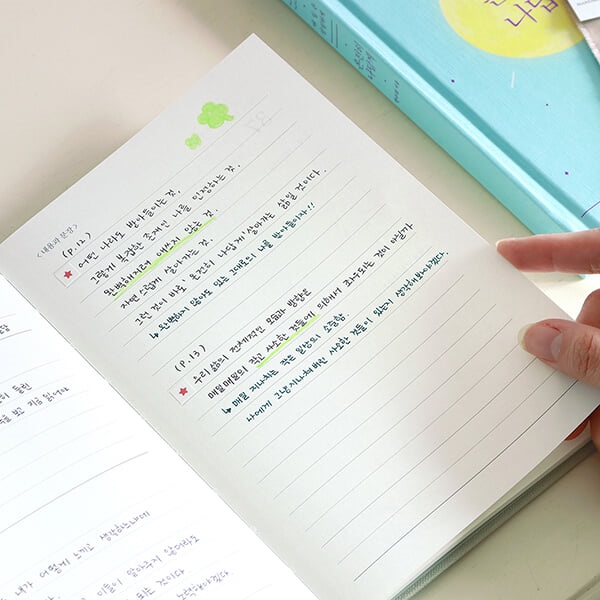 <내용과 문장>
(P.12)
어떤 나라도 받아들이는 것,
그렇게 복잡한 존재인 나를 인정하는 것,
완벽해지려 애쓰지 않는 것,
자연스럽게 살아가는 것.
그런 것이 바로 온전히 나답게 살아가는 삶일 것이다.
↳ 완벽하지 않아도 있는 그대로의 나를 받아들이자!!
(P.13)
우리 삶의 전체적인 모습과 방향은
매일매일의 작고 사소한 것들에 의해서 좌우되는 것이 아닐까
↳ 매일 지나치는 작은 일상의 소중함.
나에게 그냥 지나쳐버린 사소한 것들이 있는지 생각해봐야겠다.
보고 지금 읽어야
내가 어떻게 느끼고 생각하느냐에
이들이 알아주지 않더라도
되는 것이다
나답